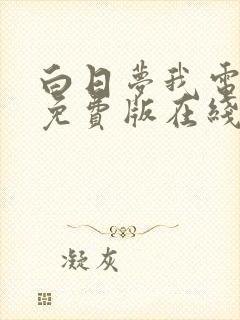 白日夢我電
免費版在綫
凝灰